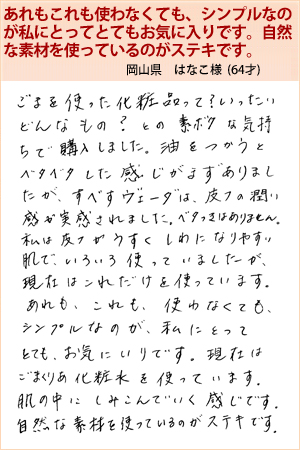 あれもこれも使わなくても、シンプルなの
が私にとってとてもお気に入りです。自然
な素材を使っているのがステキです。
岡山県　はなこ様 (64才)
ごまを使った化粧品って?いったい
どんなもの? との素ボクな気持
ちで購入しました。油をつかうと
ベタベタした感じがまずありまし
たが、すべすべヴェーダは、皮フの潤い
感が実感されました。ベタつきはありません。
私は皮フがうすくしわになりやすい
肌で、いろいろ使っていましたが、
現在はこれだけを使っています。
あれも、これも、使わなくても、
シンプルなのが、私にとって
とても、お気にいりです。現在は
ごまくりあ化粧水を使っています。
肌の中にしみこんでいく感じです。
自然な素材を使っているのがステキです。